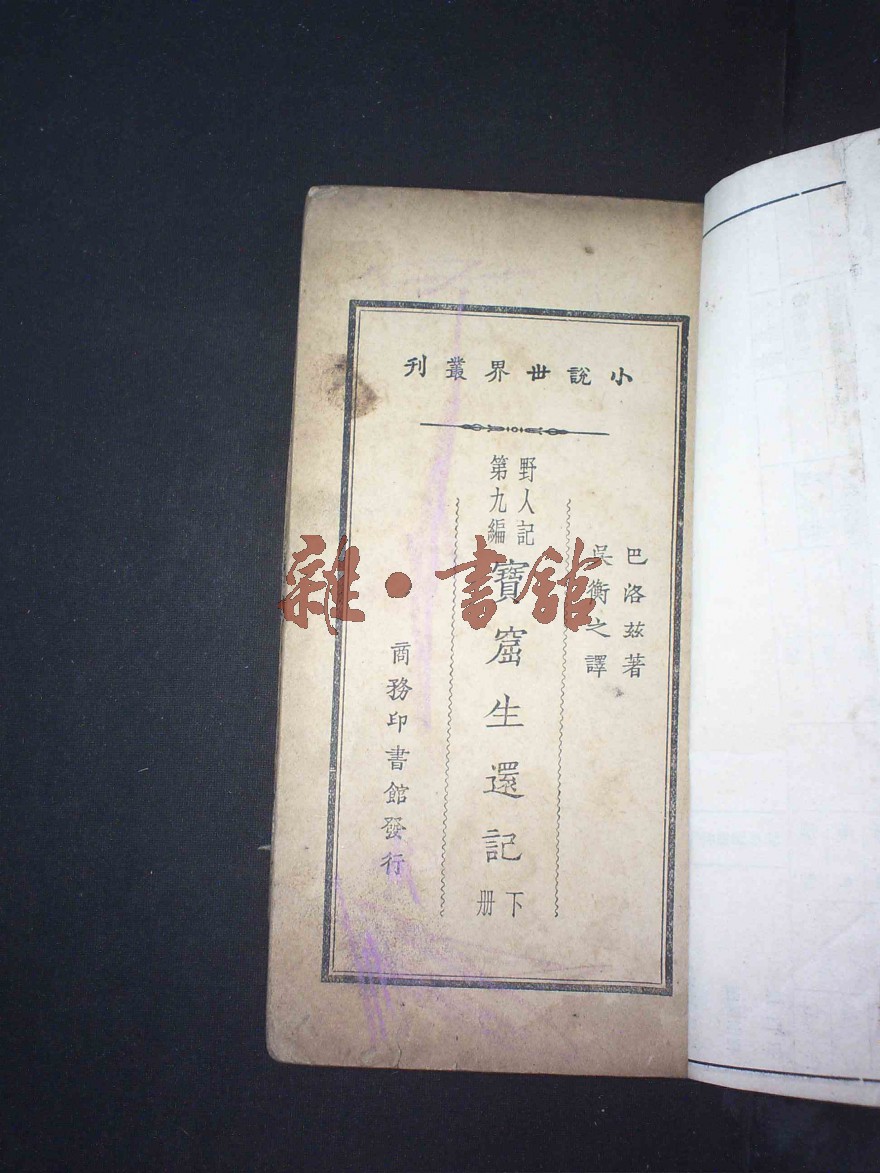 小說世界叢刊
巴洛茲著
吳衡之譯
野人記
第九編
寶窟生還記
下册
商務印書館發行
雜·書館